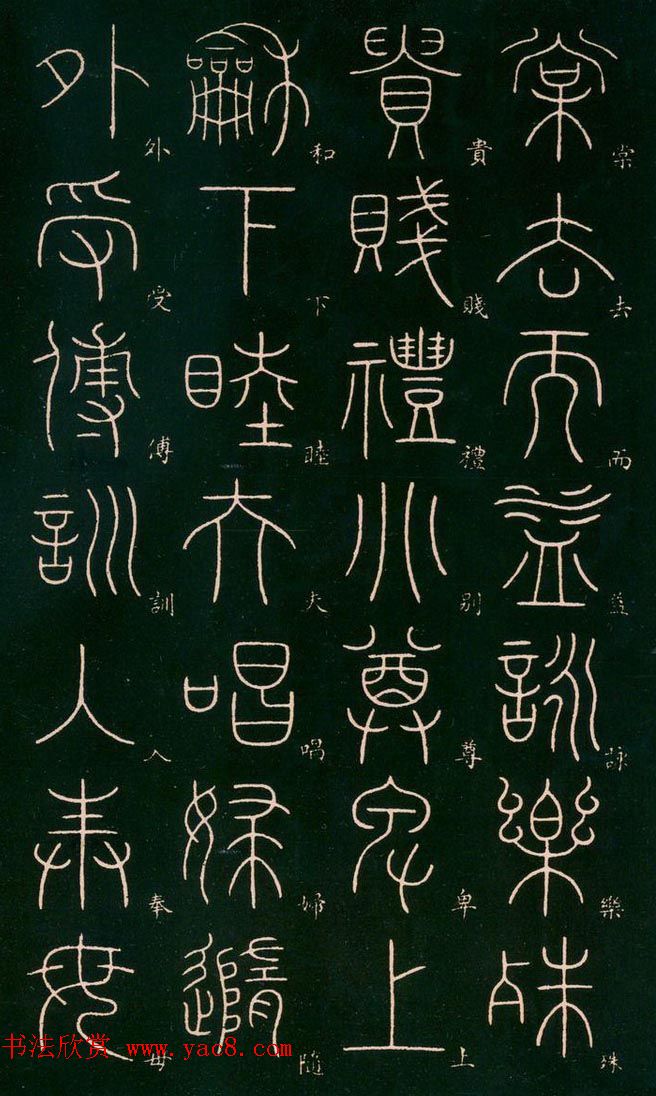 棠去而益詠樂殊
貴賤禮別尊卑上
和下睦夫唱婦隨
外受傅訓入奉母
书法欣赏 www.yac8.com